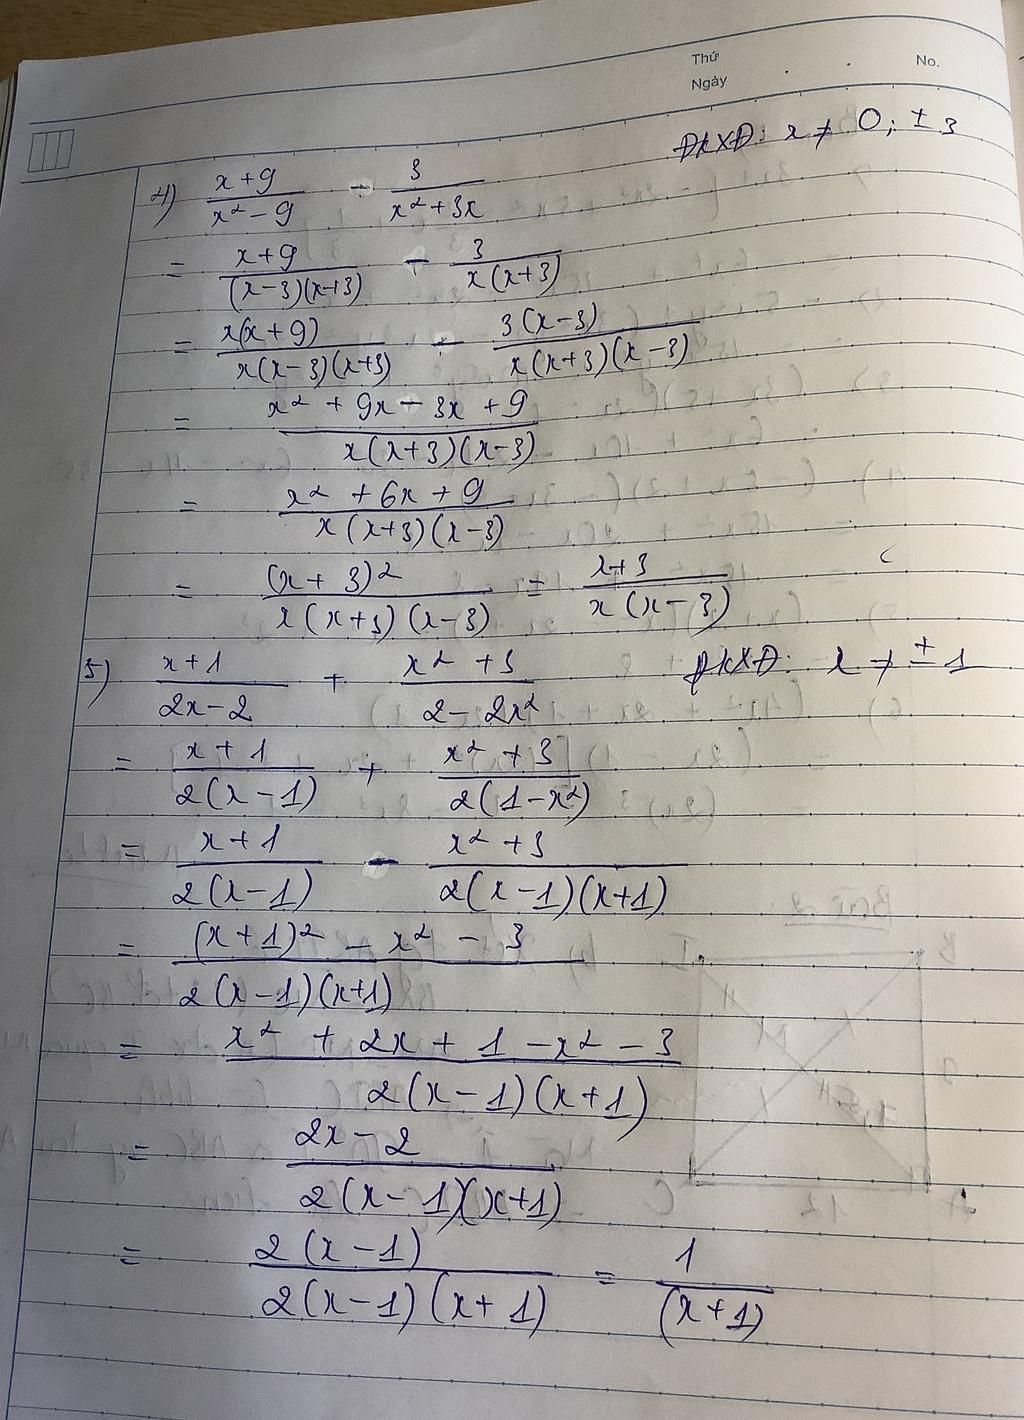 Thứ
Ngày
No.
ĐKXĐ: x ≠ 0; ± 3
4) (x+9)/(x² - 9) - 3/(x² + 3x)
= (x+9)/((x-3)(x+3)) - 3/(x(x+3))
= x(x+9)/(x(x-3)(x+3)) - 3(x-3)/(x(x+3)(x-3))
= (x² + 9x - 3x + 9)/(x(x+3)(x-3))
= (x² + 6x + 9)/(x(x+3)(x-3))
= (x+3)²/(x(x+3)(x-3)) = (x+3)/(x(x-3))
5) (x+1)/(2x-2) + (x² + 3)/(2 - 2x²) ĐKXĐ: x ≠ ± 1
= (x+1)/(2(x-1)) + (x² + 3)/(2(1-x²))
= (x+1)/(2(x-1)) - (x² + 3)/(2(x-1)(x+1))
= ((x+1)² - x² - 3)/(2(x-1)(x+1))
= (x² + 2x + 1 - x² - 3)/(2(x-1)(x+1))
= (2x-2)/(2(x-1)(x+1))
= 2(x-1)/(2(x-1)(x+1)) = 1/(x+1)